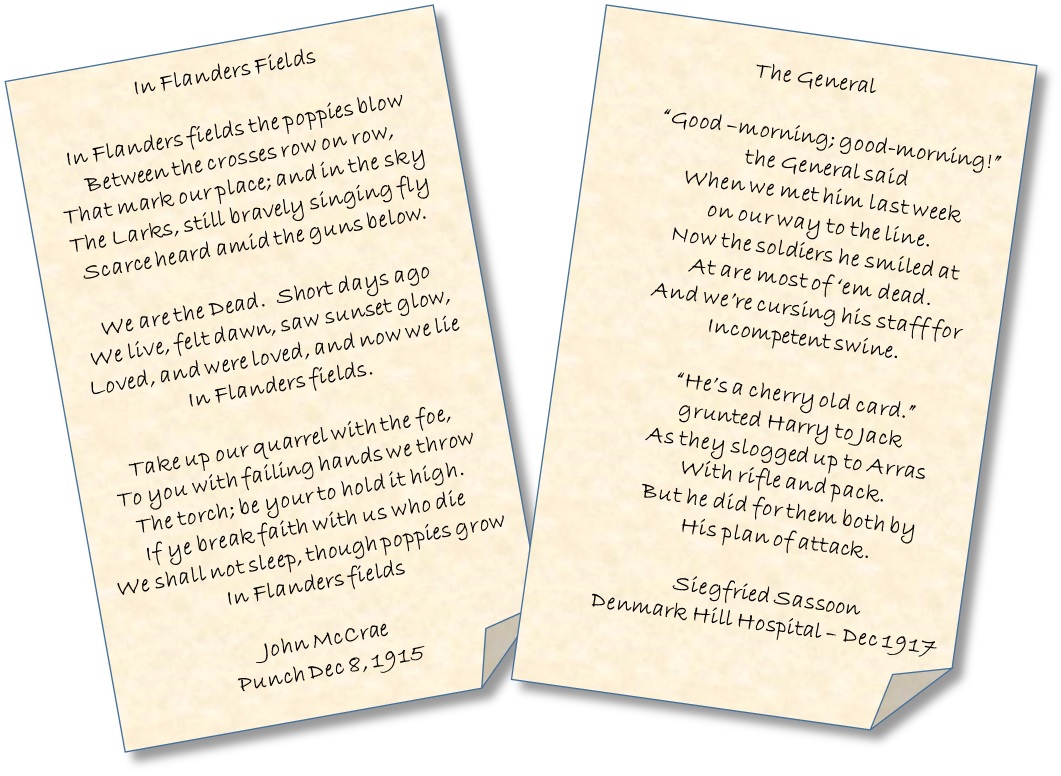 In Flanders Fields
In Flanders fields the poppies blow
Between the crosses row on row,
That mark our place; and in the sky
The Larks, still bravely singing fly
Scarce heard amid the guns below.
We are the Dead. Short days ago
We live, felt dawn, saw sunset glow,
Loved, and were loved, and now we lie
In Flanders fields.
Take up our quarrel with the foe,
To you with failing hands we throw
The torch; be your to hold it high.
If ye break faith with us who die
We shall not sleep, though poppies grow
In Flanders fields
John McCrae
Punch Dec 8, 1915
The General
“Good –morning; good-morning!”
the General said
When we met him last week
on our way to the line.
Now the soldiers he smiled at
At are most of ‘em dead.
And we’re cursing his staff for
Incompetent swine.
“He’s a cherry old card.”
grunted Harry to Jack
As they slogged up to Arras
With rifle and pack.
But he did for them both by
His plan of attack.
Siegfried Sassoon
Denmark Hill Hospital – Dec 1917